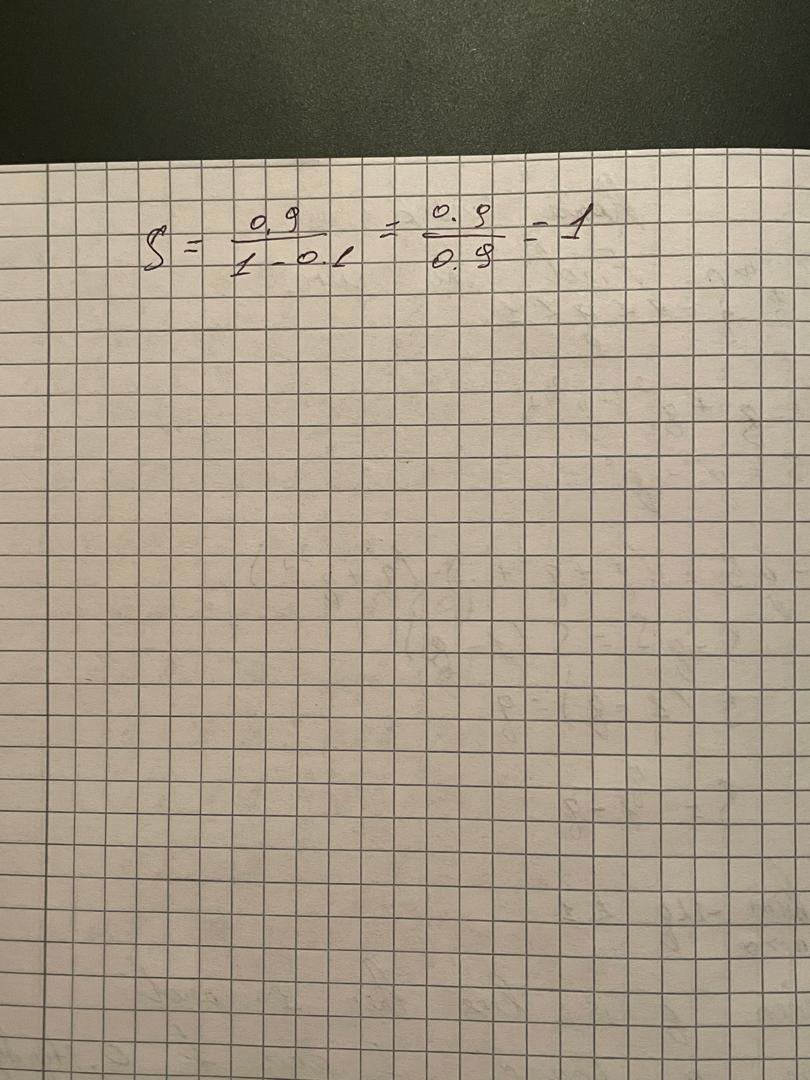 S = 0.9 / 1 - 0.1 = 0.9 / 0.9 = 1